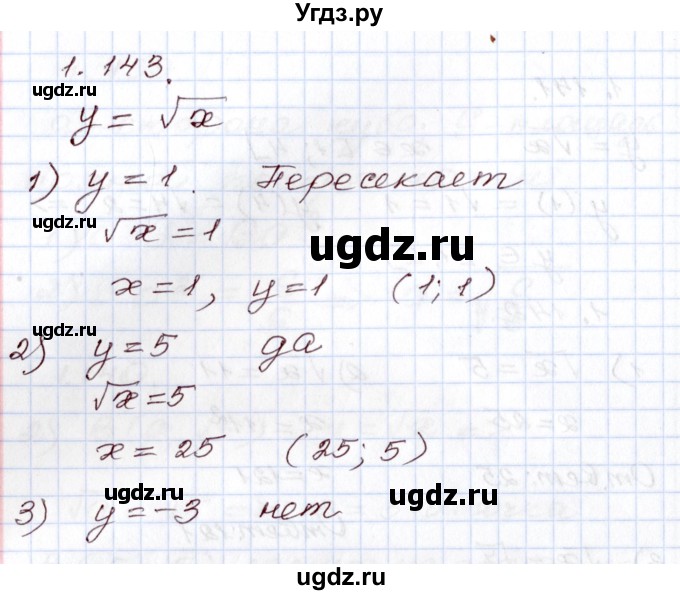 Угдз.ру
1.143.
y = √x
1) y = 1. Пересекает
√x = 1
x = 1, y = 1 (1; 1)
2) y = 5 да
√x = 5
x = 25 (25; 5)
3) y = -3 нет
ugdz.ru
ugdz.ru
ugdz.ru
ugdz.ru
ugdz.ru
ugdz.ru
ugdz.ru
ugdz.ru